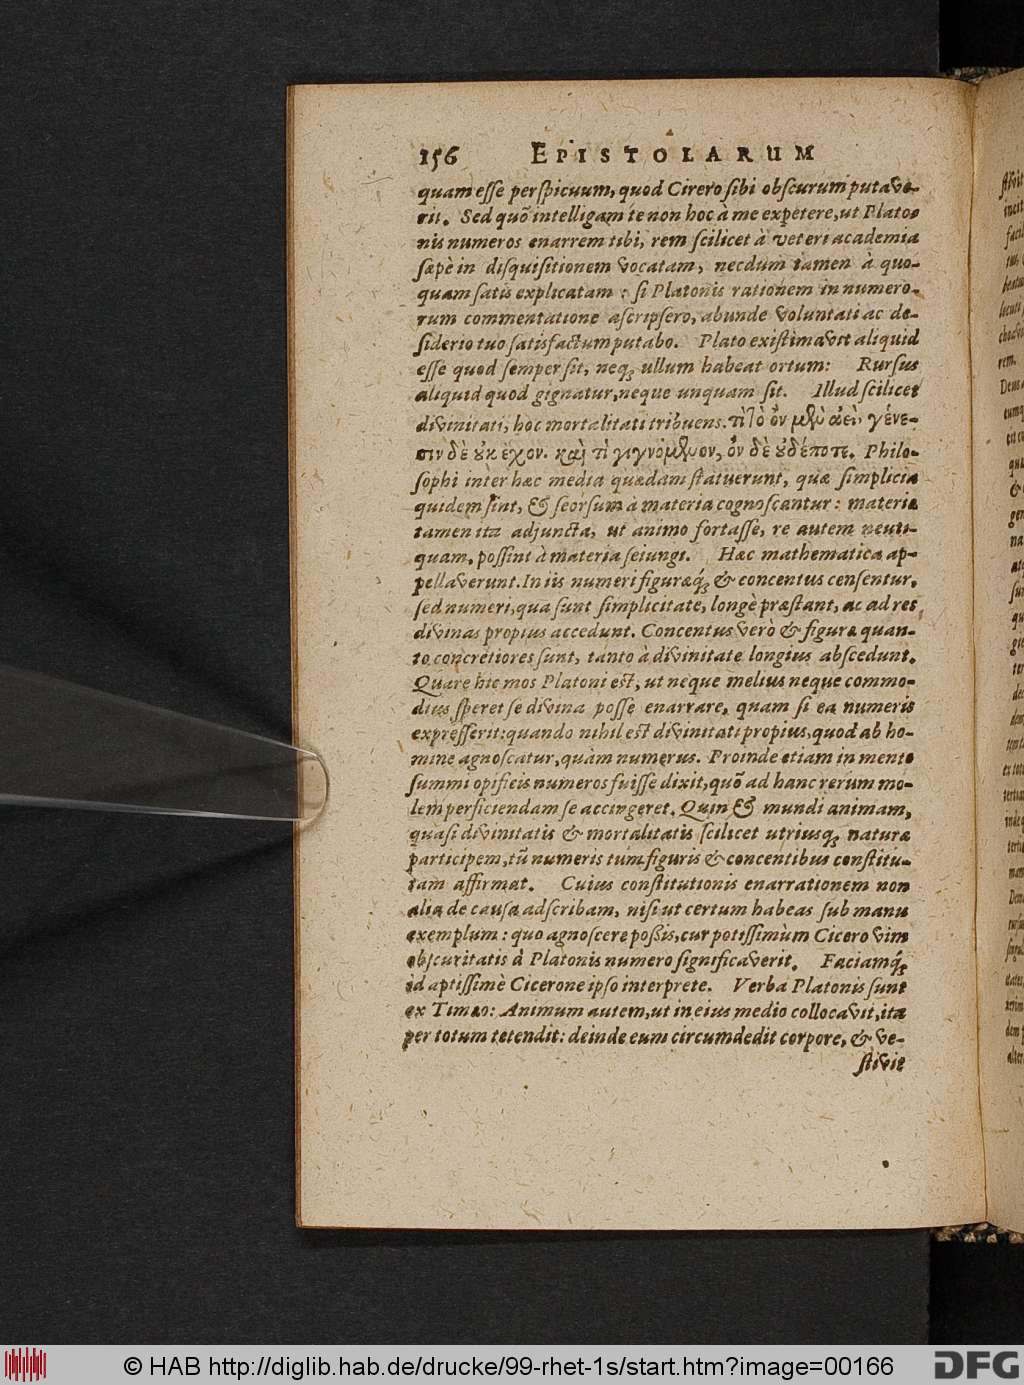 156 EPISTOLARUM
quam esse perspicuum, quod Cirero sibi obscurum putave-
rit. Sed quõ intelligam te non hoc à me expetere, ut Plato-
nis numeros enarrem tibi, rem scilicet à veteri academia
sæpè in disquisitionem vocatam, necdum tamen à quo-
quam satis explicatam : si Platonis rationem in numero-
rum commentatione ascripsero, abunde voluntati ac de-
siderio tuo satisfactum putabo. Plato existimavit aliquid
esse quod semper sit, neq; ullum habeat ortum: Rursus
aliquid quod gignatur, neque unquam sit. Illud scilicet
divinitati, hoc mortalitati tribuens. τὶ τὸ ὂν μὲν ἀεὶ, γένε-
σιν δὲ ὐκ ἔχον. καὶ τὶ γιγνόμενον, ὂν δὲ ὐδέποτε. Philo-
sophi inter hæc media quædam statuerunt, quæ simplicia
quidem sint, & seorsum à materia cognoscantur : materia
tamen ita adjuncta, ut animo fortasse, re autem neuti-
quam, possint à materia seiungi. Hæc mathematica ap-
pellaverunt. In iis numeri figuræq́; & concentus censentur.
sed numeri, qua sunt simplicitate, longè præstant, ac ad res
divinas propius accedunt. Concentus verò & figura quan-
to concretiores sunt, tanto à divinitate longius abscedunt.
Quare hic mos Platoni est, ut neque melius neque commo-
dius speret se divina posse enarrare, quam si ea numeris
expresserit: quando nihil est divinitati propius, quod ab ho-
mine agnoscatur, quàm numerus. Proinde etiam in mente
summi opificis numeros fuisse dixit, quõ ad hanc rerum mo-
lem perficiendam se accingeret. Quin & mundi animam,
quasi divinitatis & mortalitatis scilicet utriusq; naturæ
participem, tũ numeris tùm figuris & concentibus constitu-
tam affirmat. Cuius constitutionis enarrationem non
alia de causa adscribam, nisi ut certum habeas sub manu
exemplum : quo agnoscere possis, cur potissimùm Cicero vim
obscuritatis à Platonis numero significaverit. Faciamq́;
id aptissimè Cicerone ipso interprete. Verba Platonis sunt
ex Timæo: Animum autem, ut in eius medio collocavit, ita
per totum tetendit: deinde eum circumdedit corpore, & ve-
stivit
© HAB http://diglib.hab.de/drucke/99-rhet-1s/start.htm?image=00166
DFG